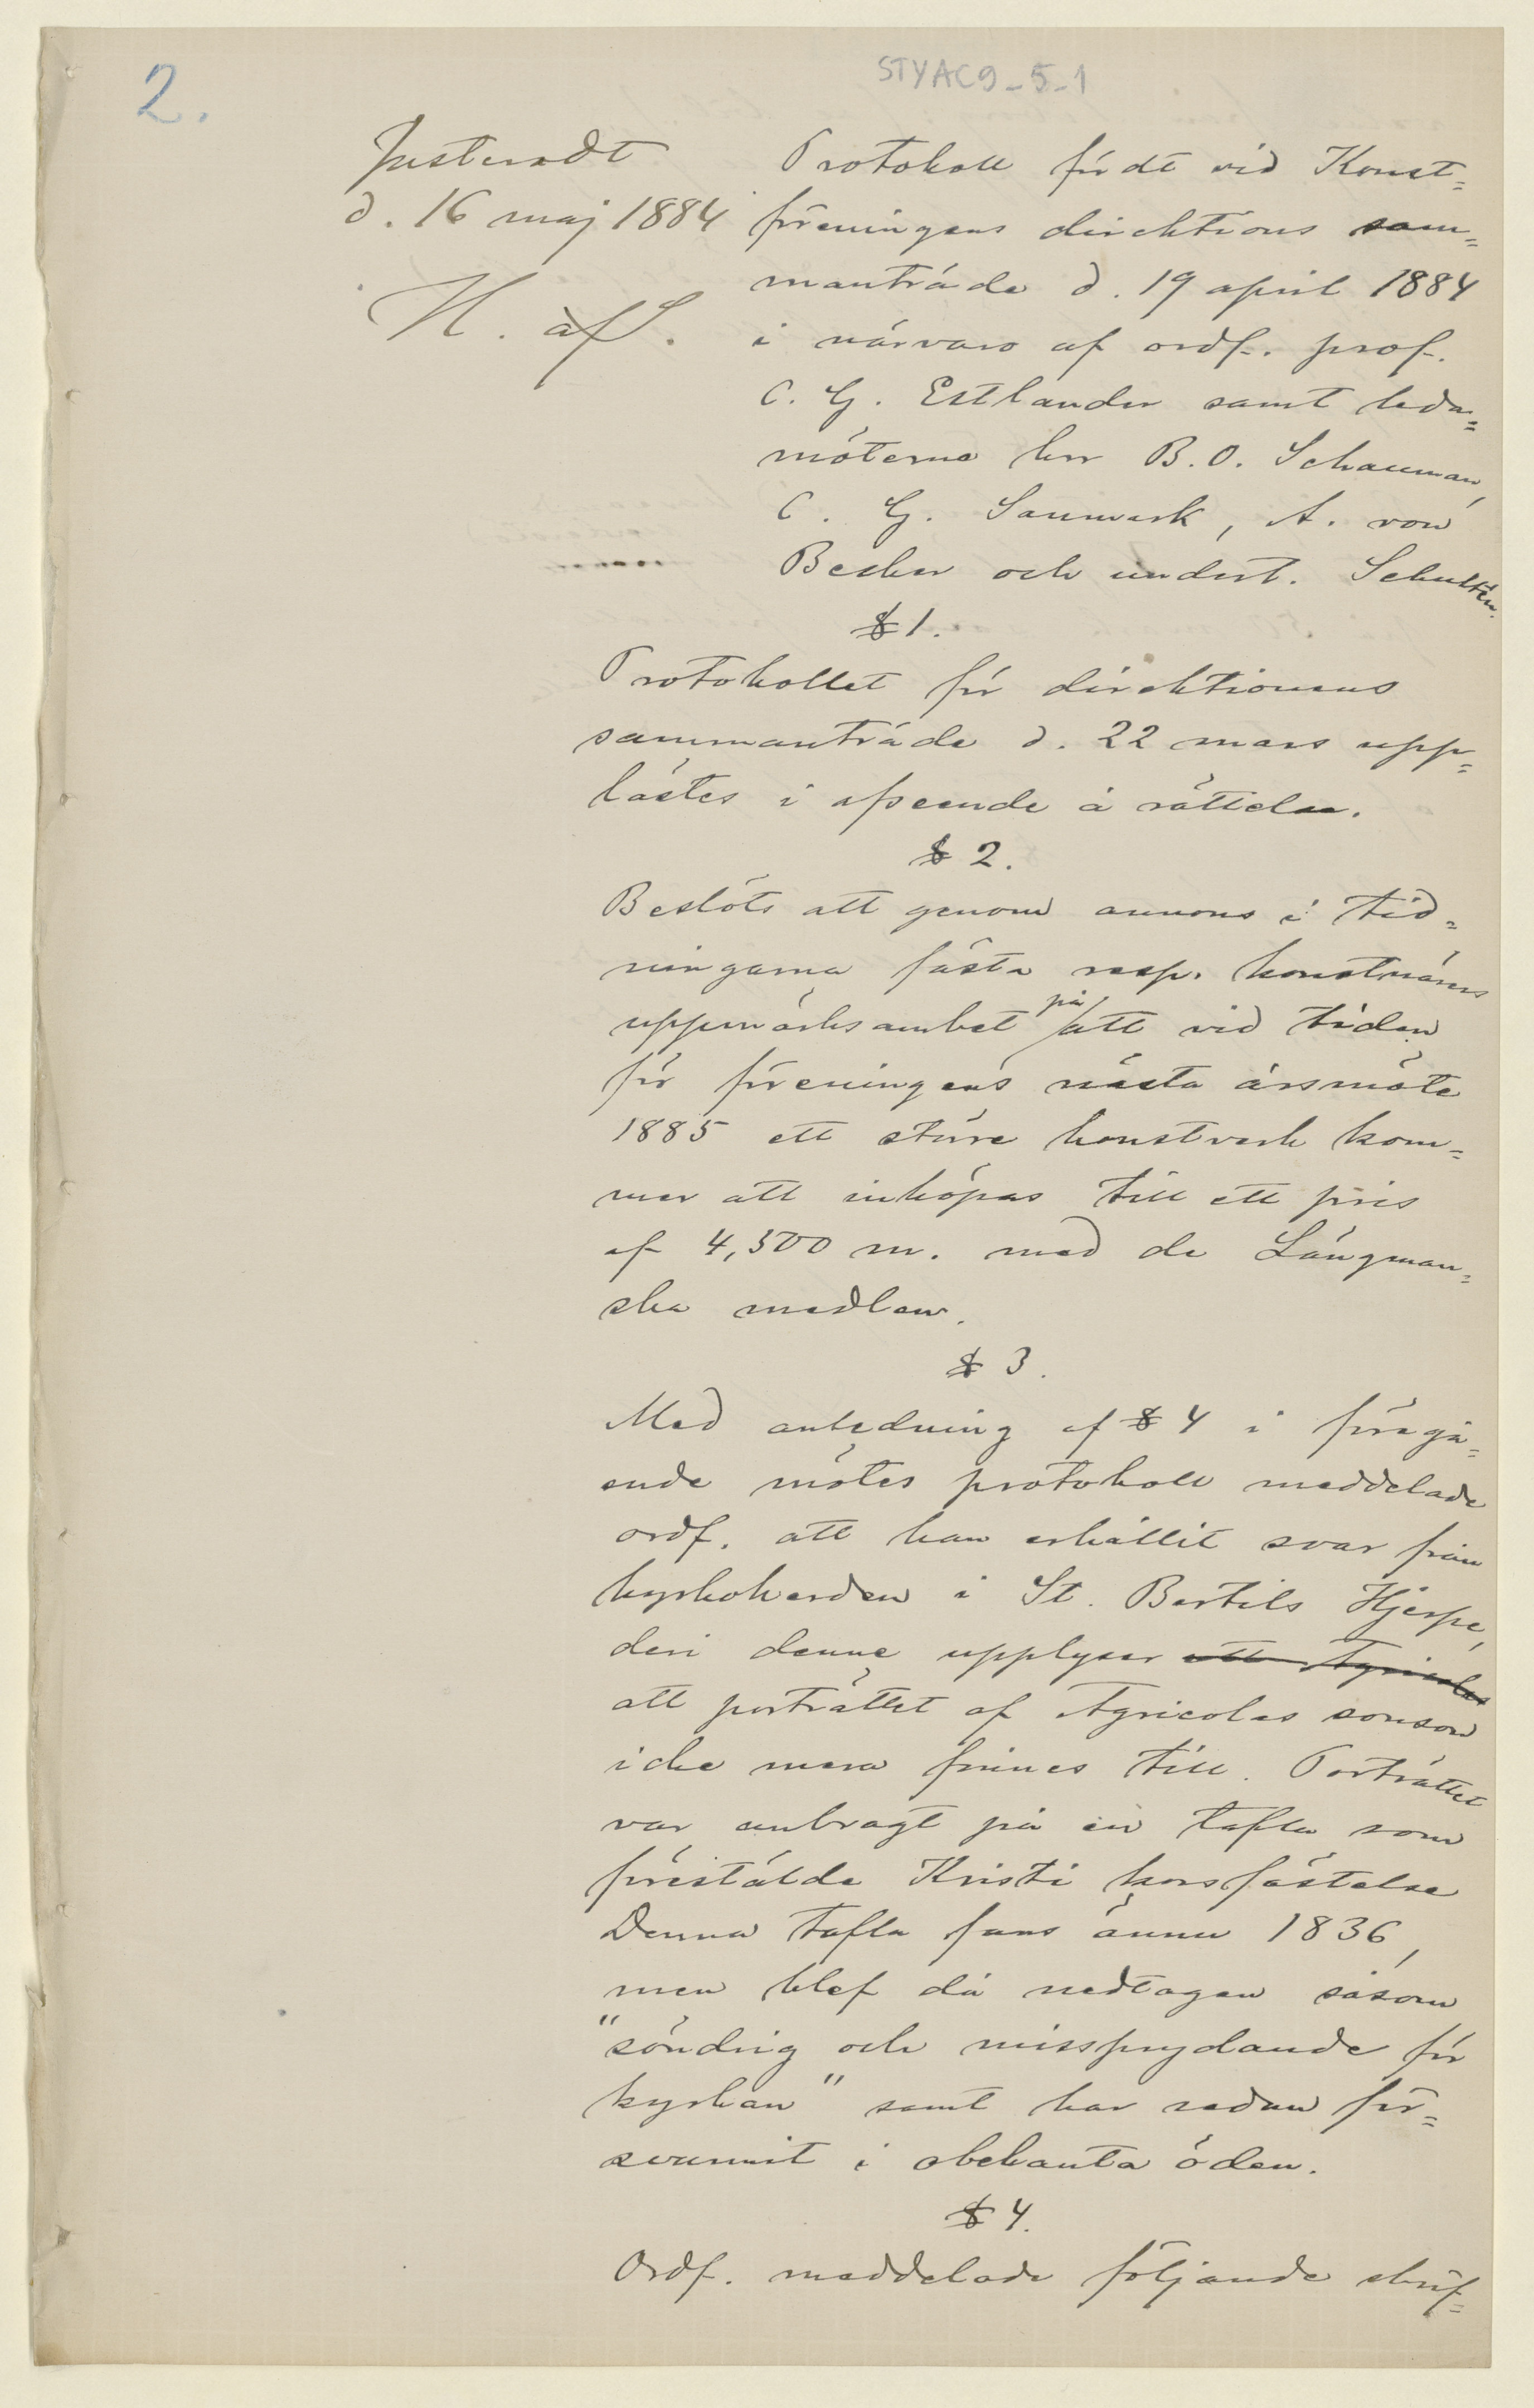 2.
STYAC9-5-1
Justeradt
d. 16 maj 1884
H. af S.
Protokoll fördt vid Konst=
föreningens direktions sam=
manträde d. 19 april 1884
i närvaro af ordf. prof.
C. G. Estlander samt leda=
möterna hrr B. O. Schauman,
C. G. Sanmark, A. von
Becker och undert. Schultén.
§ 1.
Protokollet för direktionens
sammanträde d. 22 mars upp=
lästes i afseende å rättelse.
§ 2.
Beslöts att genom annons i tid=
ningarna fästa resp. konstnärers
uppmärksamhet på att vid tiden
för föreningens nästa årsmöte
1885 ett större konstverk kom=
mer att inköpas till ett pris
af 4,500 m. med de Längman=
ska medlen.
§ 3.
Med anledning af § 4 i föregå=
ende mötes protokoll meddelade
ordf. att han erhållit svar från
kyrkoherden i St. Bertils Hjerpe,
deri denne upplyser att Agricolas
att porträttet af Agricolas sonson
icke mera finnes till. Porträttet
var anbragt på en tafla som
förestälde Kristi korsfästelse
Denna tafla fans ännu 1836,
men blef då nedtagen såsom
"söndrig och missprydande för
kyrkan" samt har sedan för=
svunnit i obekanta öden.
§ 4.
Ordf. meddelade följande skrif=